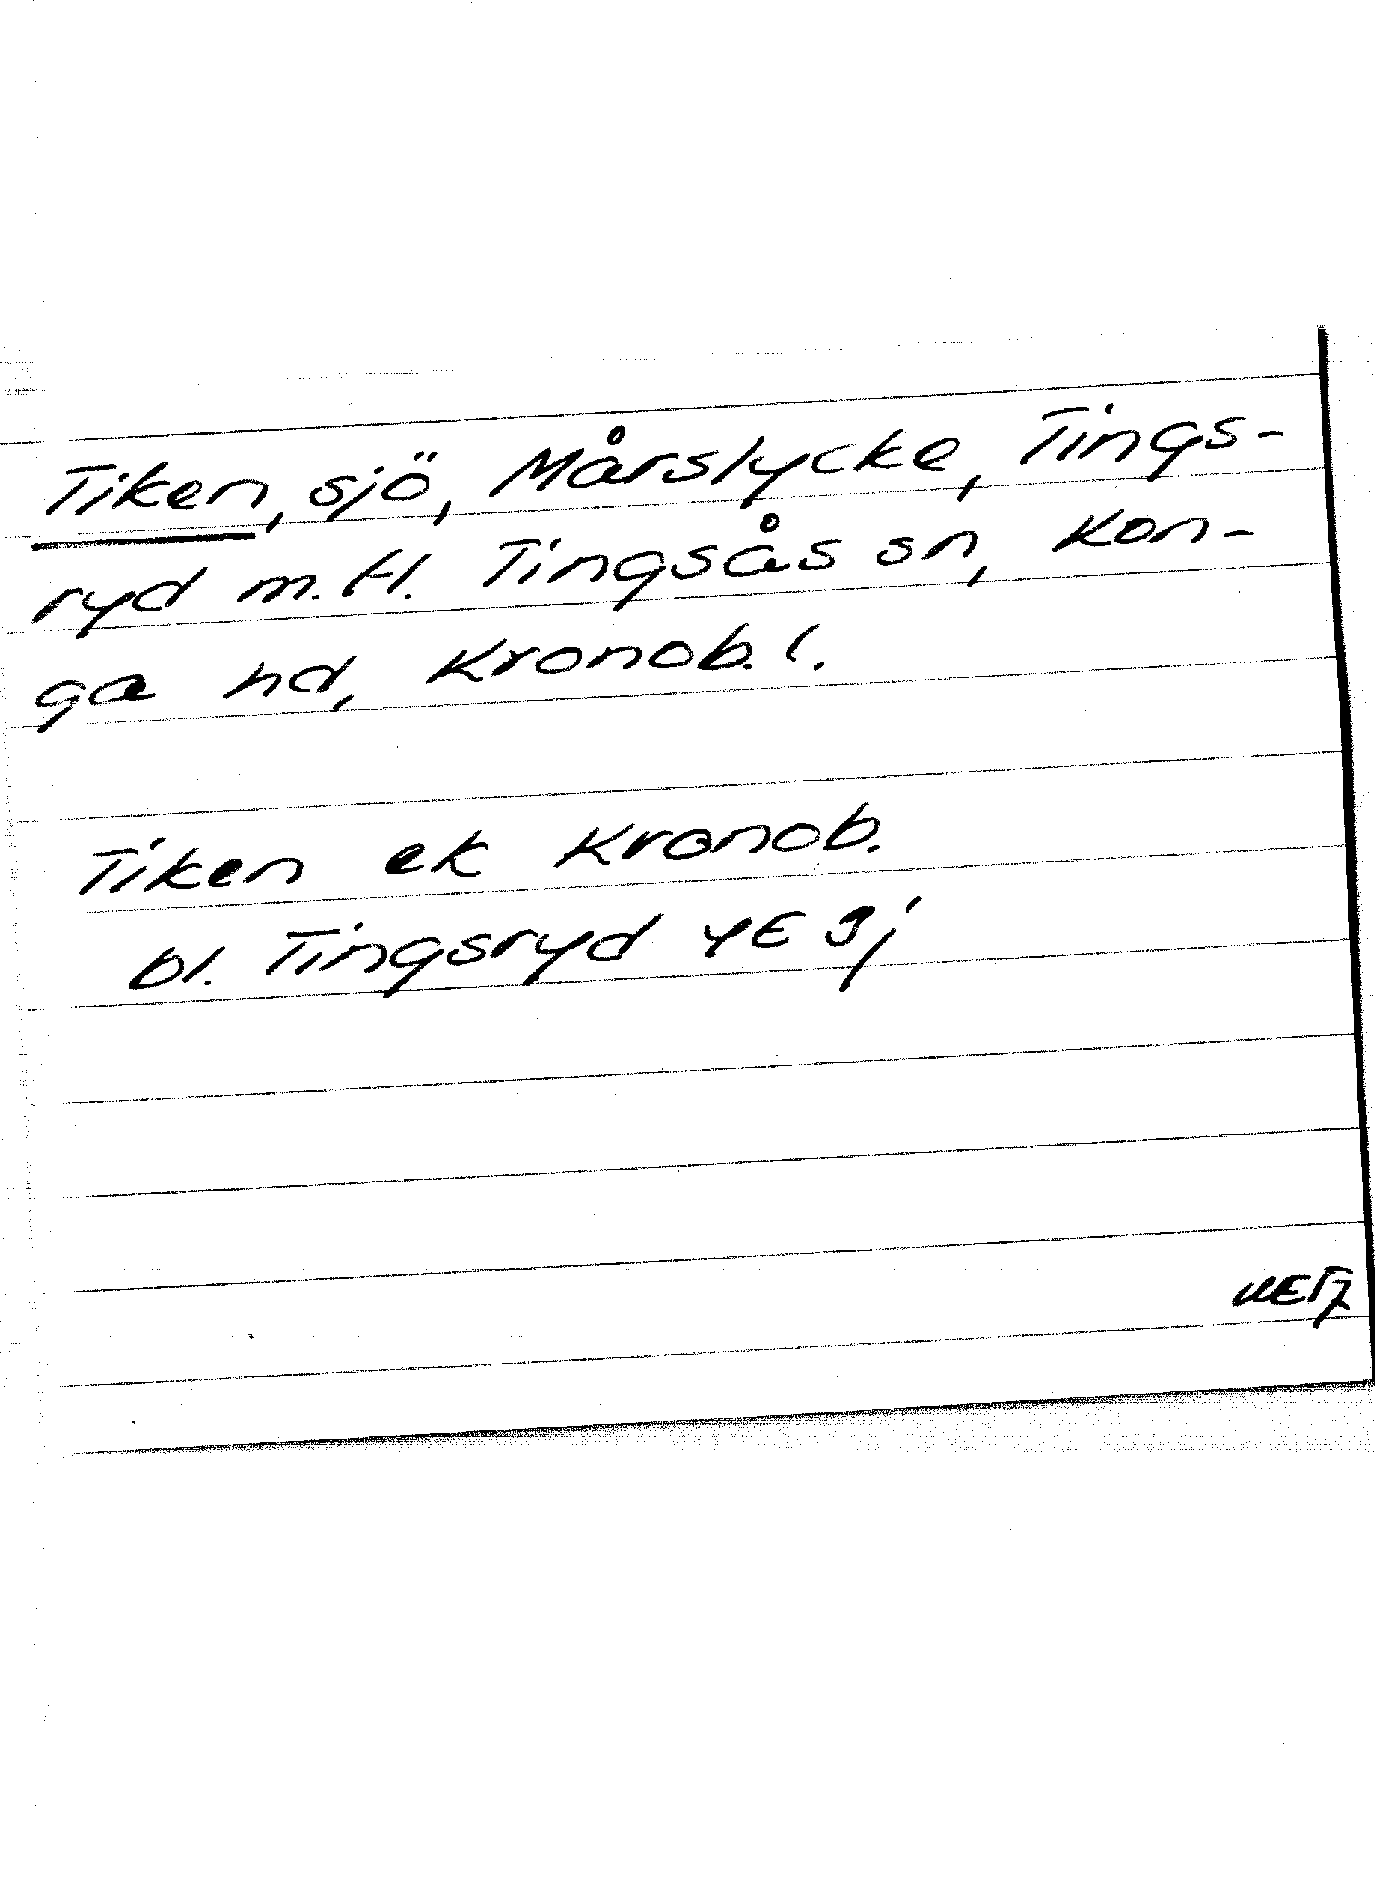 Tiken, sjö, Mårslycke, Tings-
ryd m. fl. Tingsås sn, Kon-
ga hd, Kronob. l.
Tiken ek Kronob.
bl. Tingsryd 4E 9j